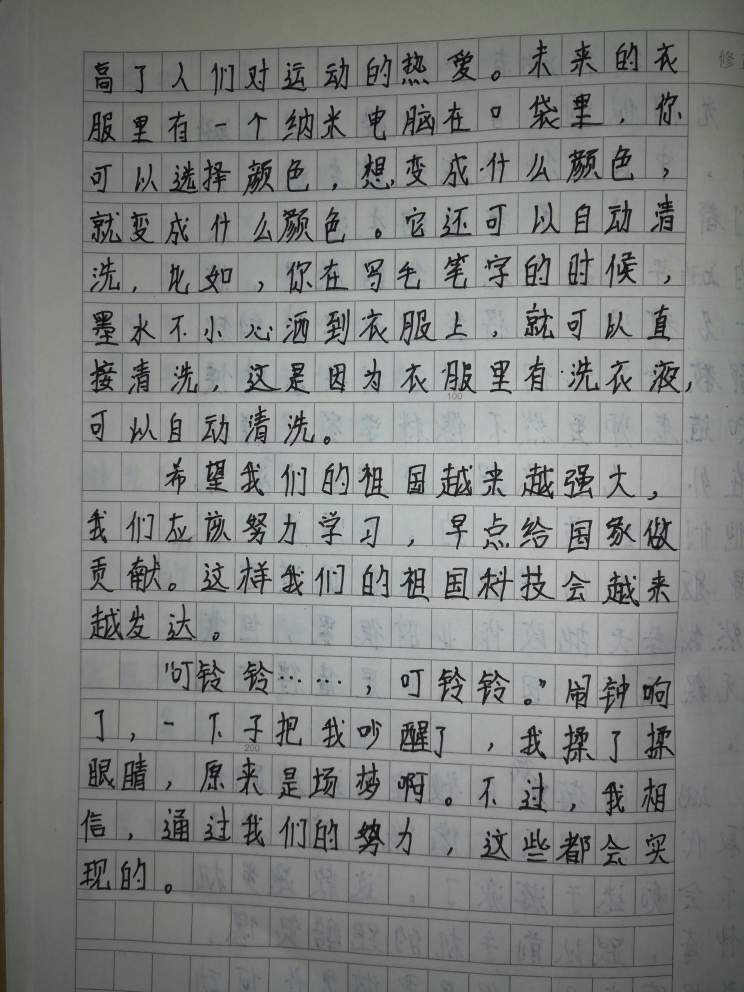 高了人们对运动的热爱。未来的衣
服里有一个纳米电脑在口袋里，你
可以选择颜色，想变成什么颜色，
就变成什么颜色。它还可以自动清
洗，比如，你在写毛笔字的时候，
墨水不小心洒到衣服上，就可以直
接清洗，这是因为衣服里有洗衣液，
100
可以自动清洗。
希望我们的祖国越来越强大，
我们应该努力学习，早点给国家做
贡献。这样我们的祖国科技会越来
越发达。
“叮铃铃……，叮铃铃。”闹钟响
了，一下子把我吵醒了，我揉了揉
200
眼睛，原来是场梦啊。不过，我相
信，通过我们的努力，这些都会实
现的。